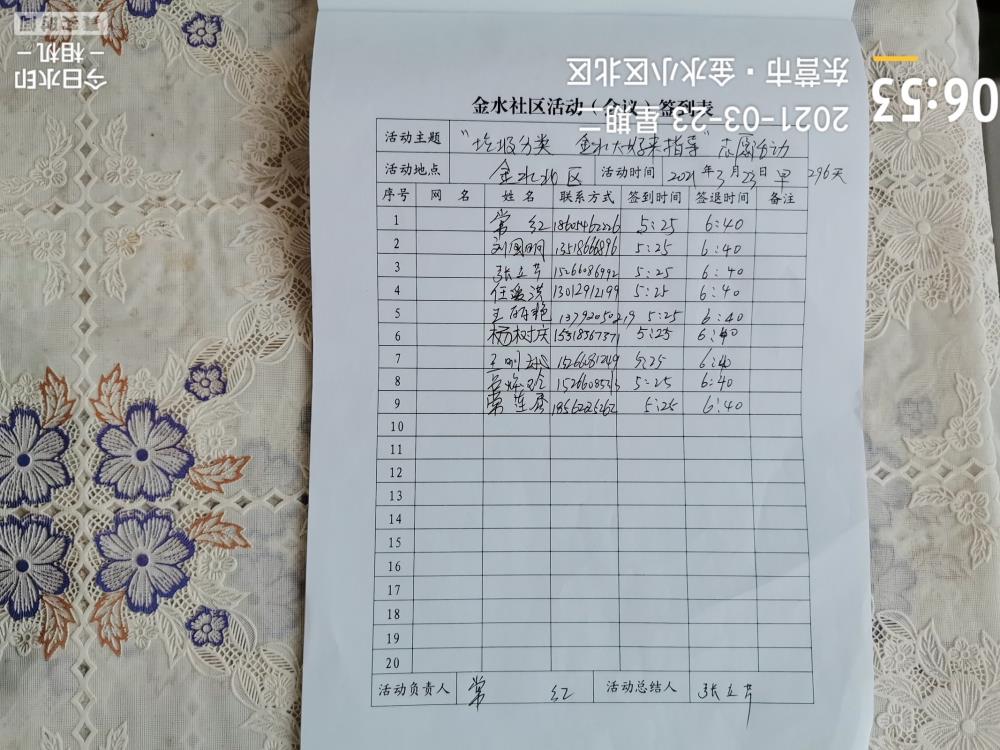 金水社区活动(会议)签到表
活动主题 "垃圾分类 金水大好来指导"志愿活动
活动地点 金水北区 活动时间 2021年3月23日 早 296天
序号 网名 姓名 联系方式 签到时间 签退时间 备注
1 常红 18605462226 5:25 6:40
2 刘国明 13518666896 5:25 6:40
3 张立芹 15266086992 5:25 6:40
4 任 洪 13012912199 5:25 6:40
5 王 艳 13792050219 5:25 6:40
6 杨树庆 15318367371 5:25 6:40
7 王明 5:25 6:40
8 5:25 6:40
9 常莲 5:25 6:40
10
11
12
13
14
15
16
17
18
19
20
活动负责人 常红 活动总结人 张立芹
06:53
2021-03-23 星期二
东营市·金水小区北区
今日水印
- 相机 -
真实时间